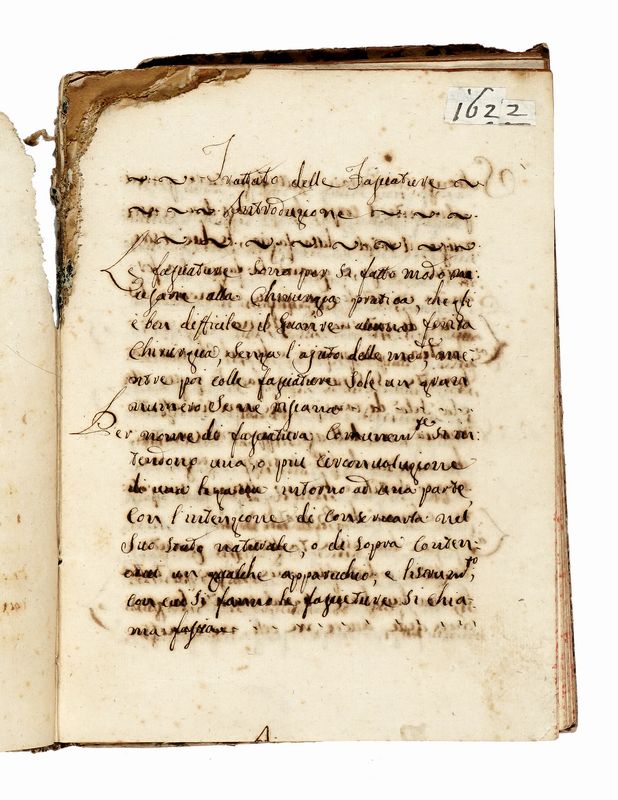 1622
Trattato delle Fasciature
Introduzione
Le fasciature sono per si fatto modo ne:
cisarie alla Chirurgia pratica, che gli
è ben difficile il Guarire alcuna ferita
Chirurgica, senza l'ajuto delle med.me, me-
ntre poi colle fasciature sole un gran
numero se ne risana
Per nome di fasciatura comunem.te s'in:
tendono una, o più circonvoluzione
di una ligatura intorno ad una parte
con l'intenzione di conservarla nel
suo stato naturale, o di sopra conten-
ervi un qualche apparechio, e l'strum.to,
con cui si fanno le fasciature si chia
ma fascia
A.